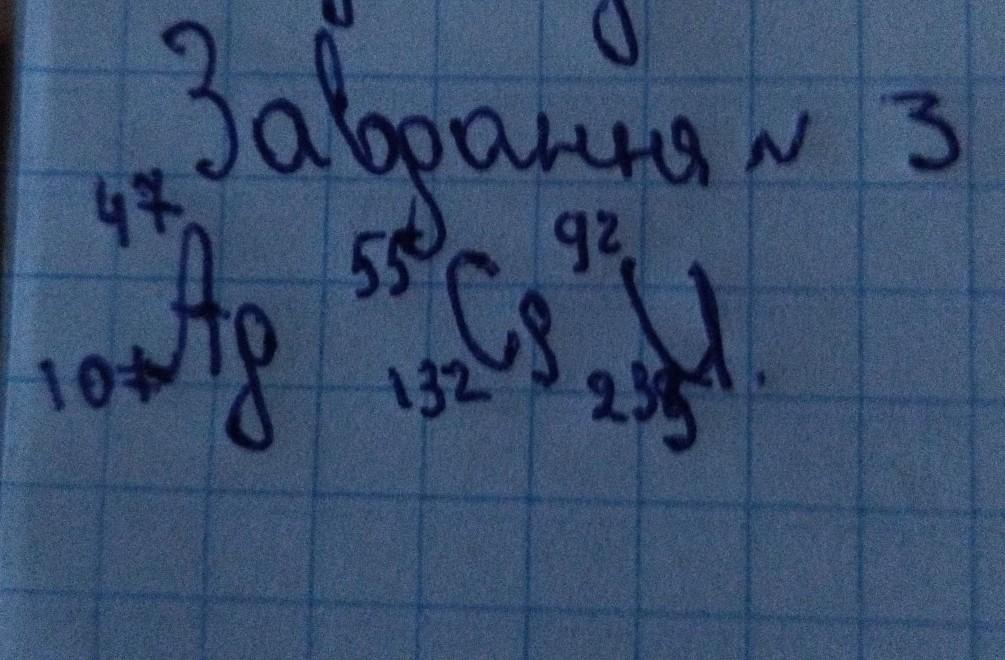 Завдання № 3
47 Ag 107 55 Cs 132 92 U 239.